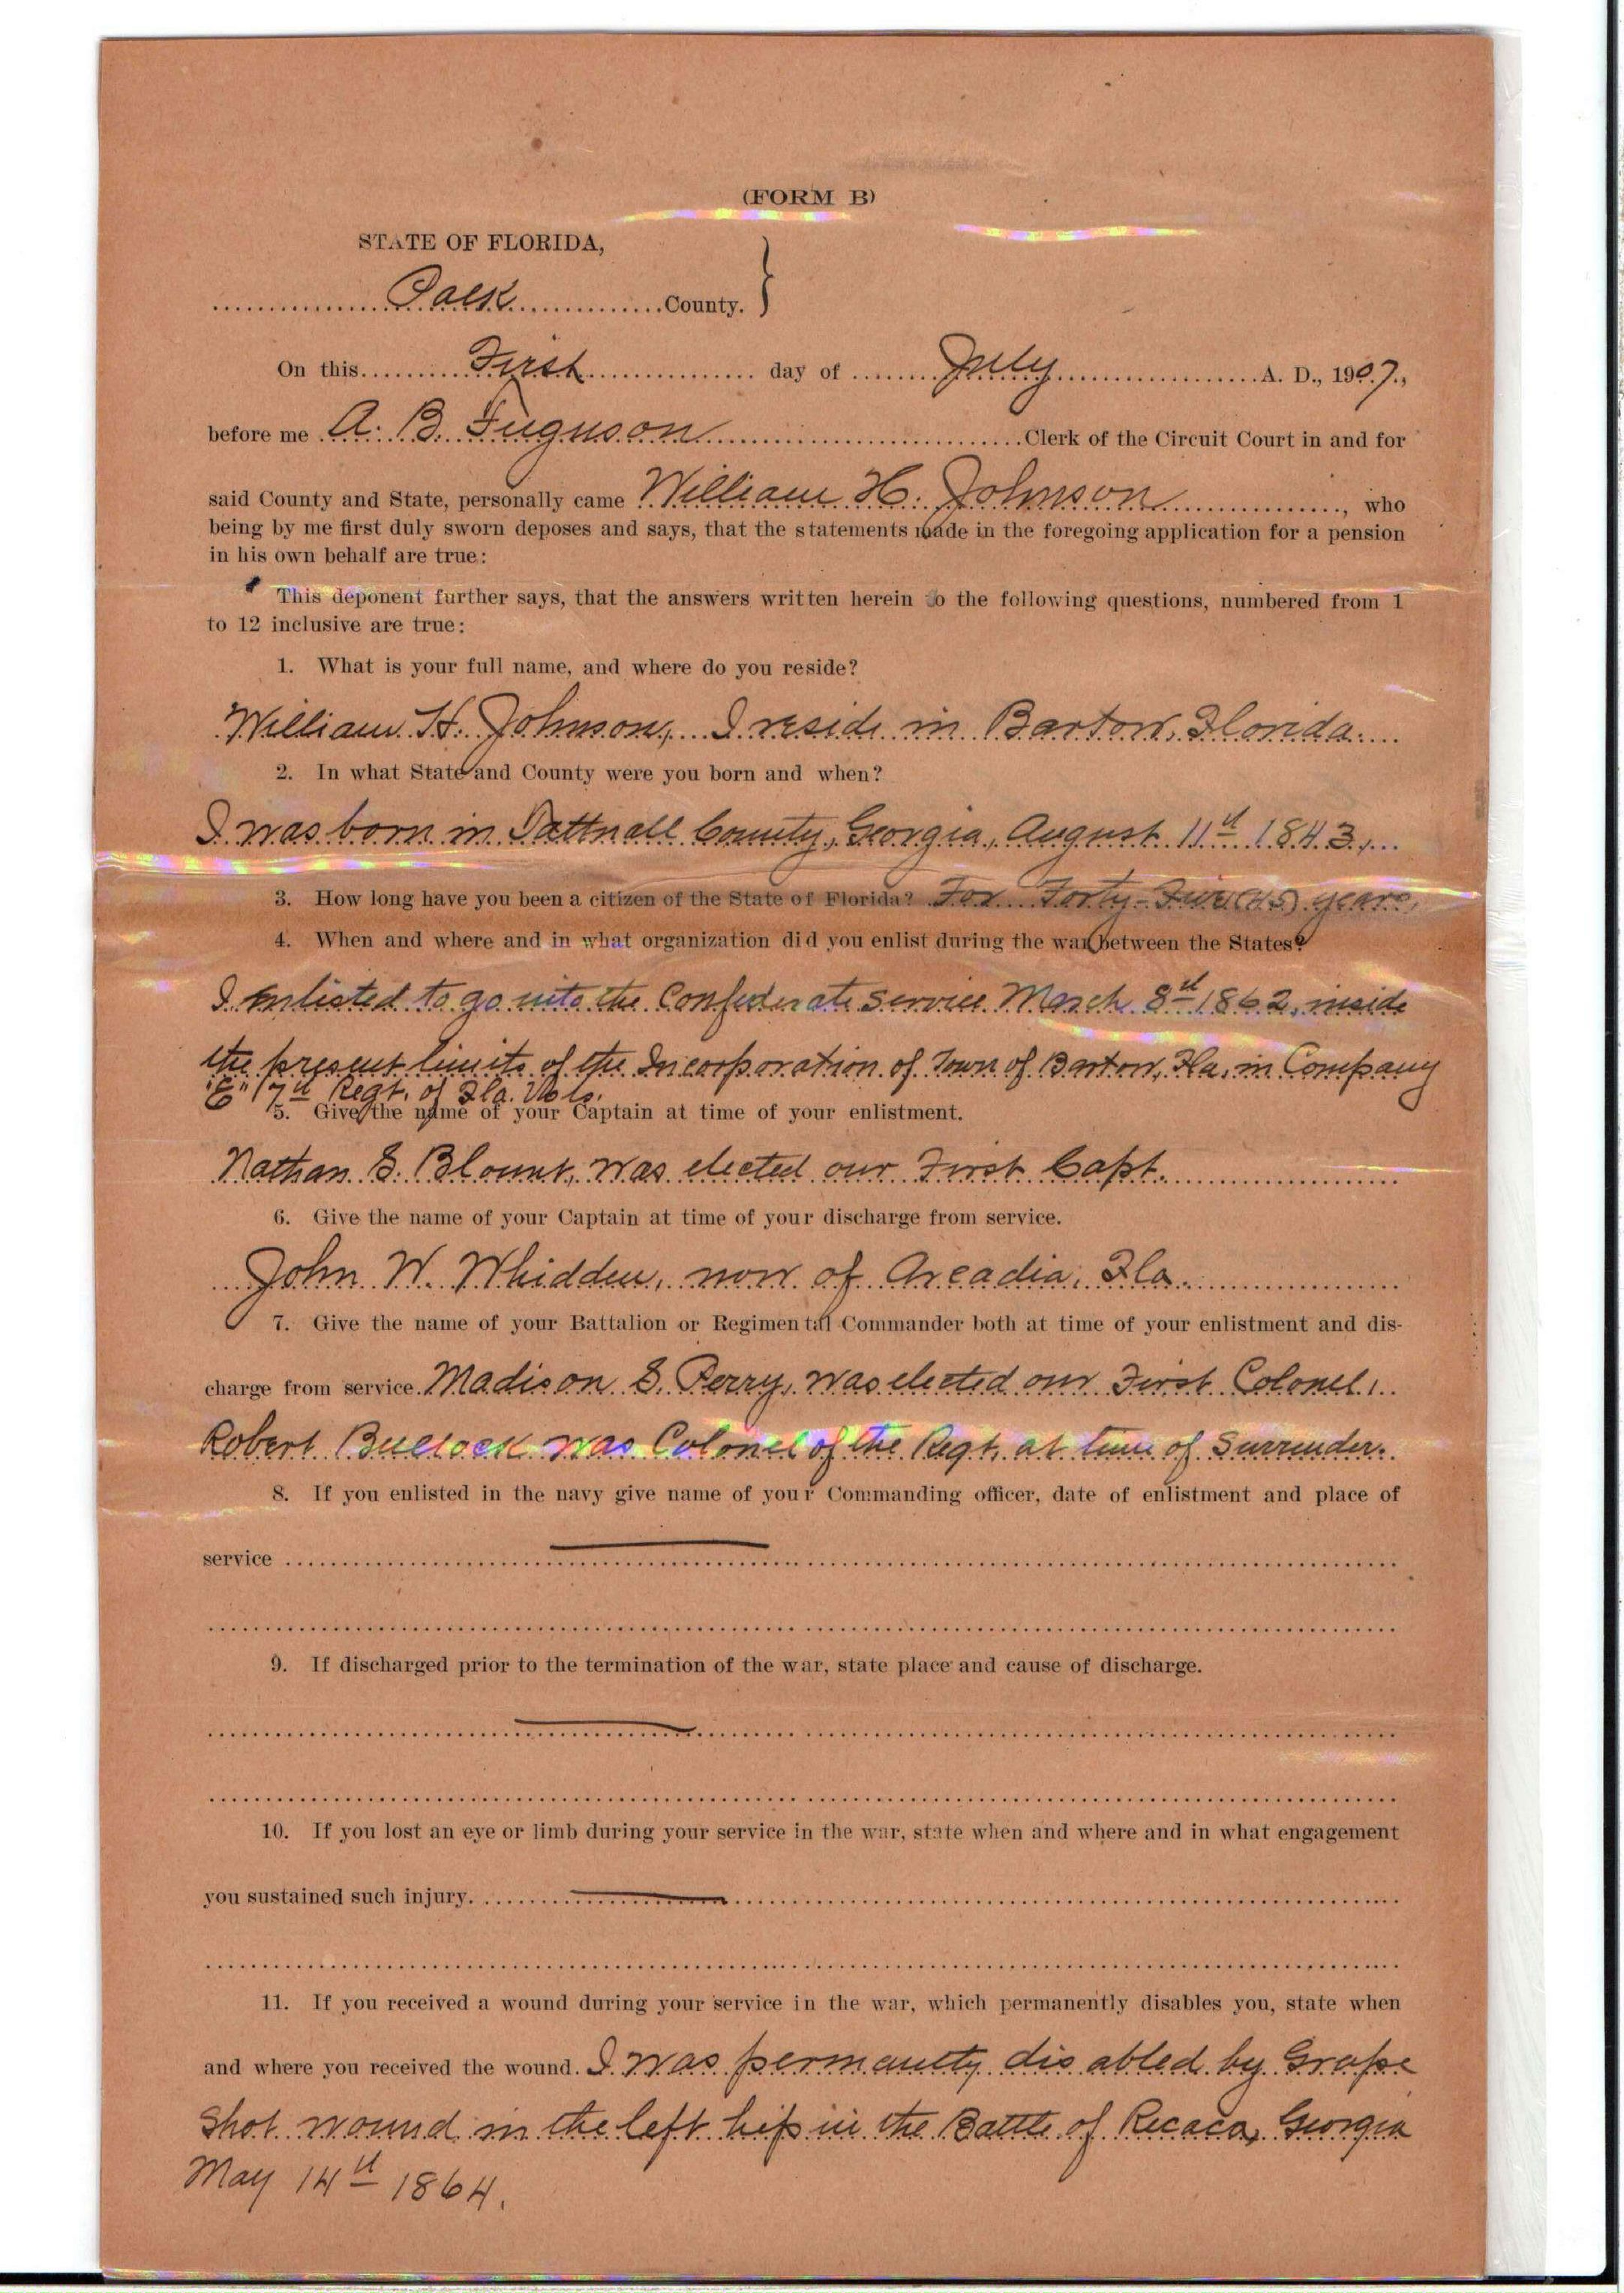 (FORM B)
STATE OF FLORIDA,
Polk County.
On this First day of July A. D., 1907.,
before me A. B. Fuguson Clerk of the Circuit Court in and for
said County and State, personally came William H. Johnson, who
being by me first duly sworn deposes and says, that the statements made in the foregoing application for a pension
in his own behalf are true:
This deponent further says, that the answers written herein to the following questions, numbered from 1
to 12 inclusive are true:
1. What is your full name, and where do you reside?
William H. Johnson, I reside in Bartow, Florida.
2. In what State and County were you born and when?
I was born in Tattnall County, Georgia, August 11th 1843,
3. How long have you been a citizen of the State of Florida? For Forty-Five (45) years,
4. When and where and in what organization did you enlist during the war between the States?
I enlisted to go into the Confederate service March 8th 1862, inside
the present limits of the Incorporation of Town of Bartow, Fla, in Company
"E" 7th Regt. of Fla. Vols.
5. Give the name of your Captain at time of your enlistment.
Nathan S. Blount, was elected our First Capt.
6. Give the name of your Captain at time of your discharge from service.
John W. Whidden, now of Arcadia, Fla.
7. Give the name of your Battalion or Regimental Commander both at time of your enlistment and dis-
charge from service. Madison S. Perry, was elected our First Colonel,
Robert Bullock was Colonel of the Regt. at time of Surrender.
8. If you enlisted in the navy give name of your Commanding officer, date of enlistment and place of
service
9. If discharged prior to the termination of the war, state place and cause of discharge.
10. If you lost an eye or limb during your service in the war, state when and where and in what engagement
you sustained such injury.
11. If you received a wound during your service in the war, which permanently disables you, state when
and where you received the wound. I was permanetly disabled by Grape
Shot wound in the left hip in the Battle of Recaca, Georgia
May 14th 1864.